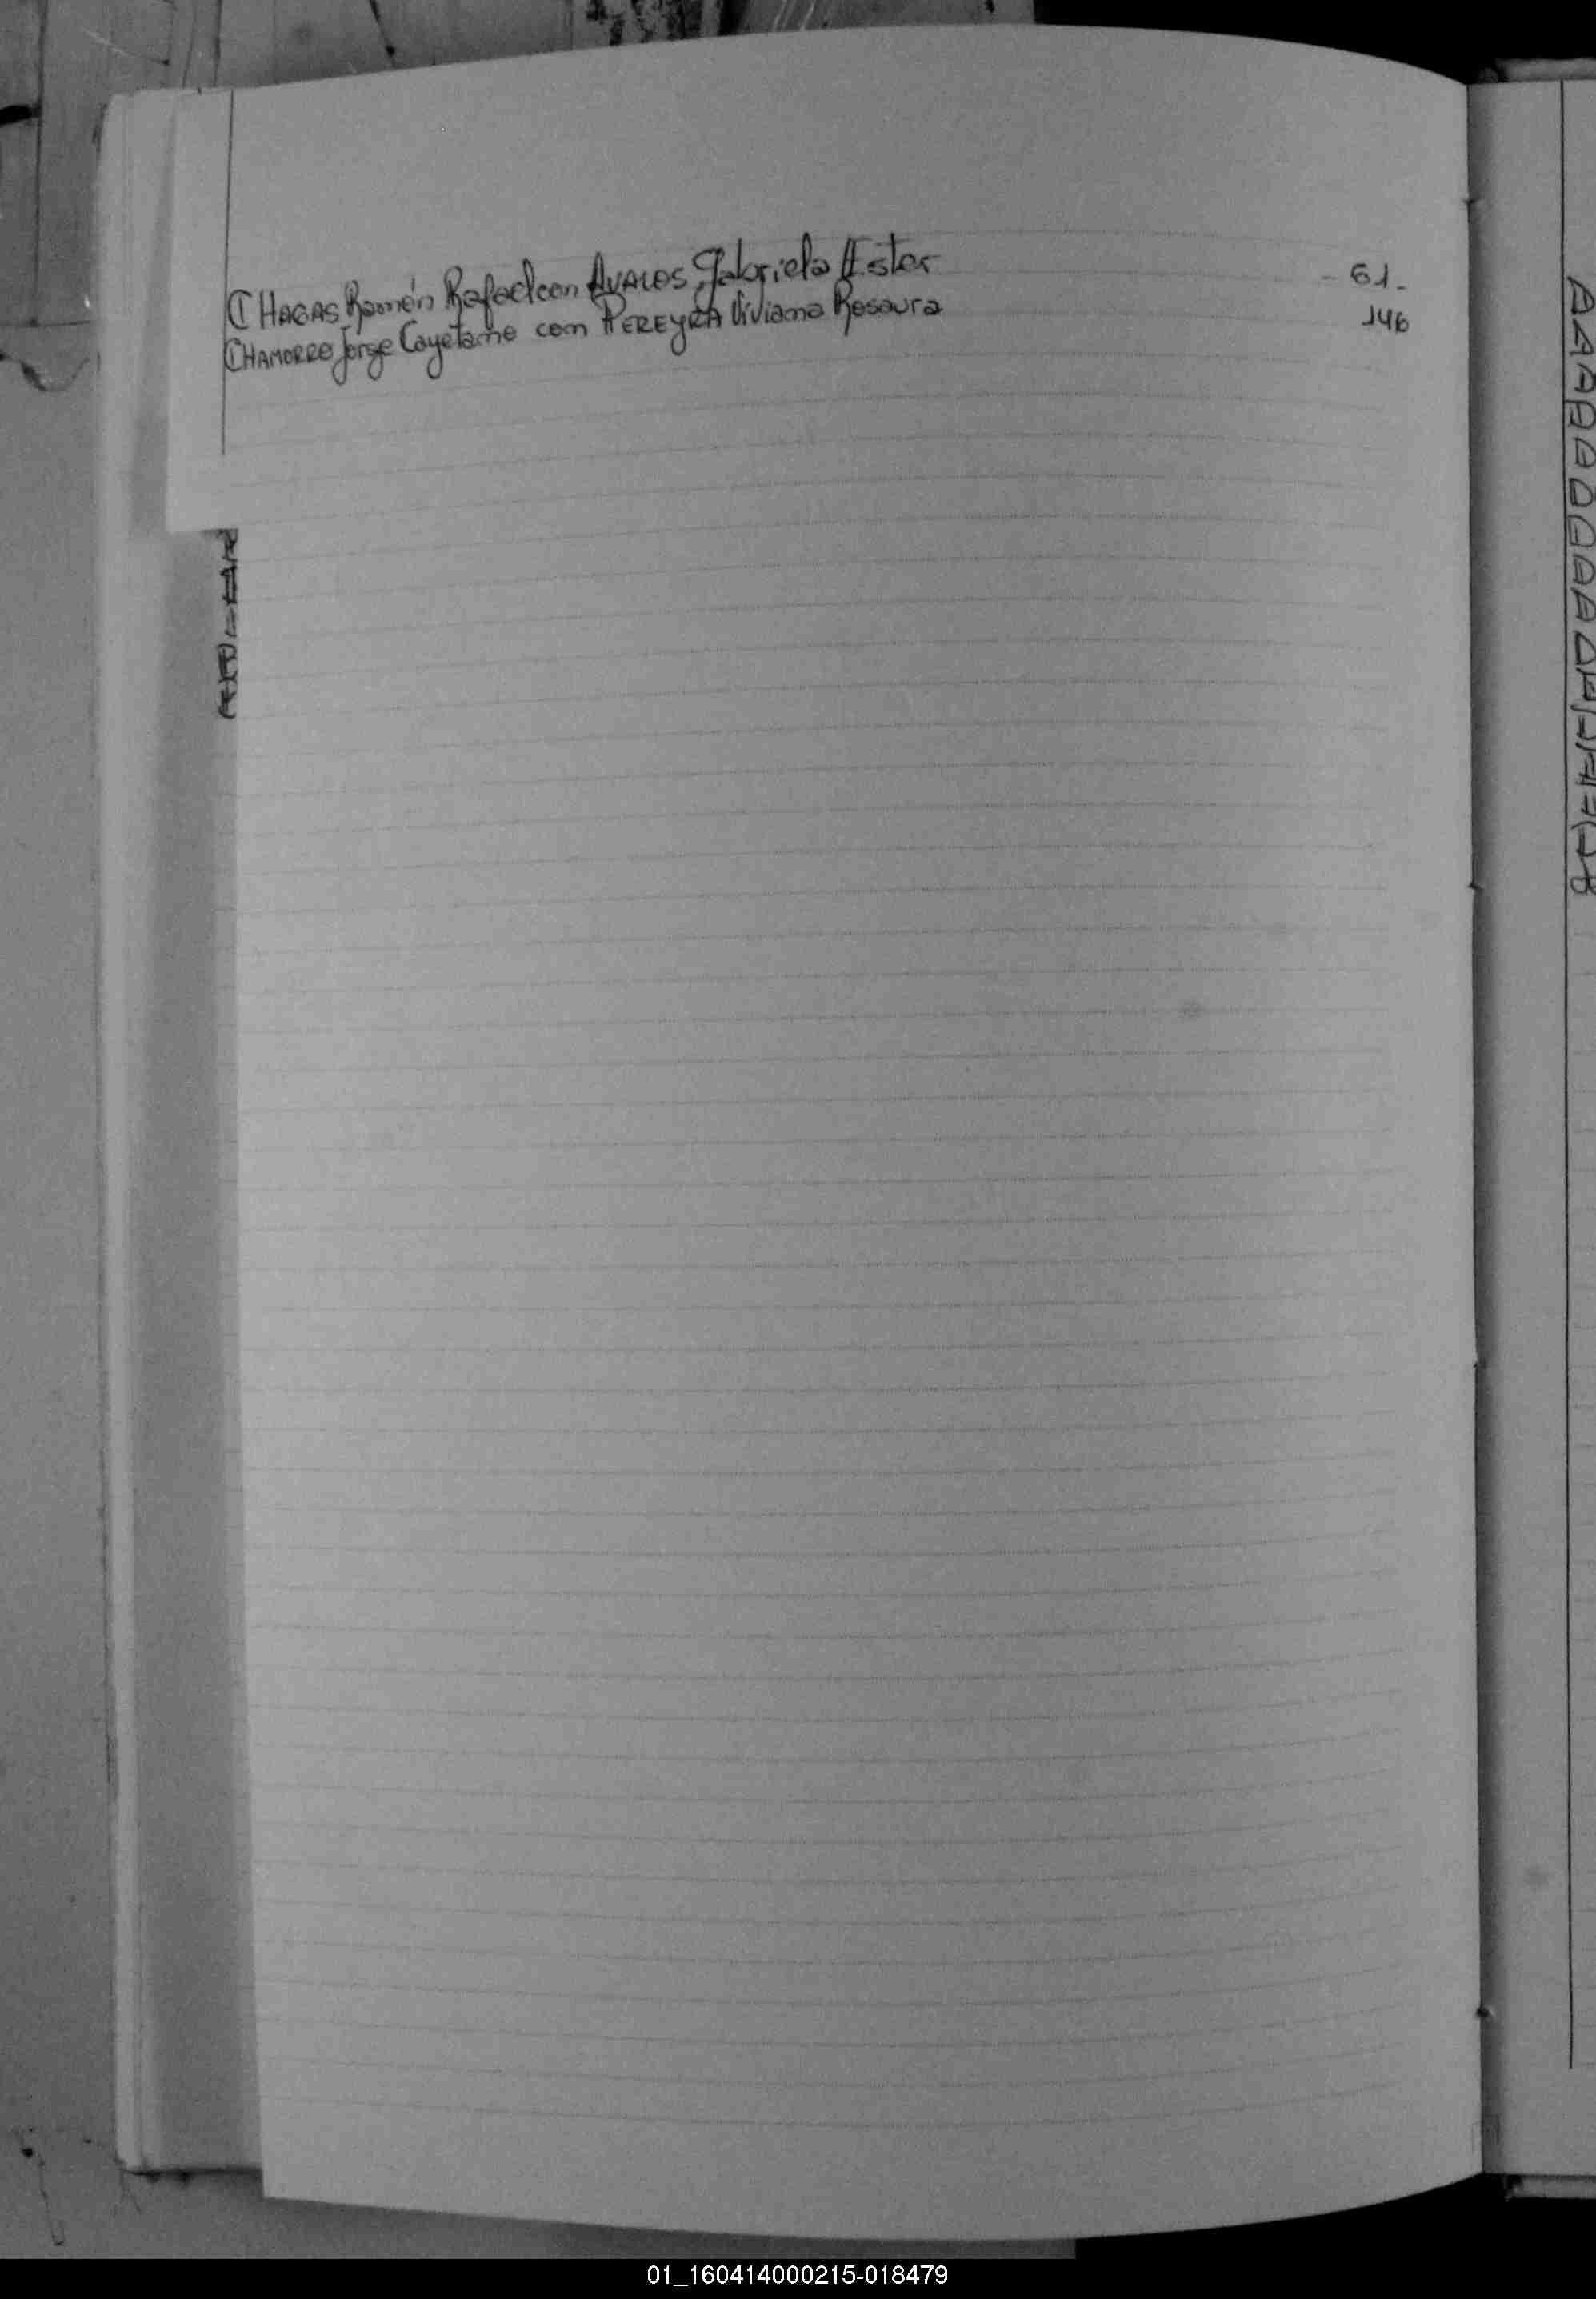 CHAGAS Ramón Rafael con AVALOS, Gabriela Ester - 61.
CHAMORRO Jorge Cayetano con PEREYRA Viviana Rosaura 146
01_160414000215-018479